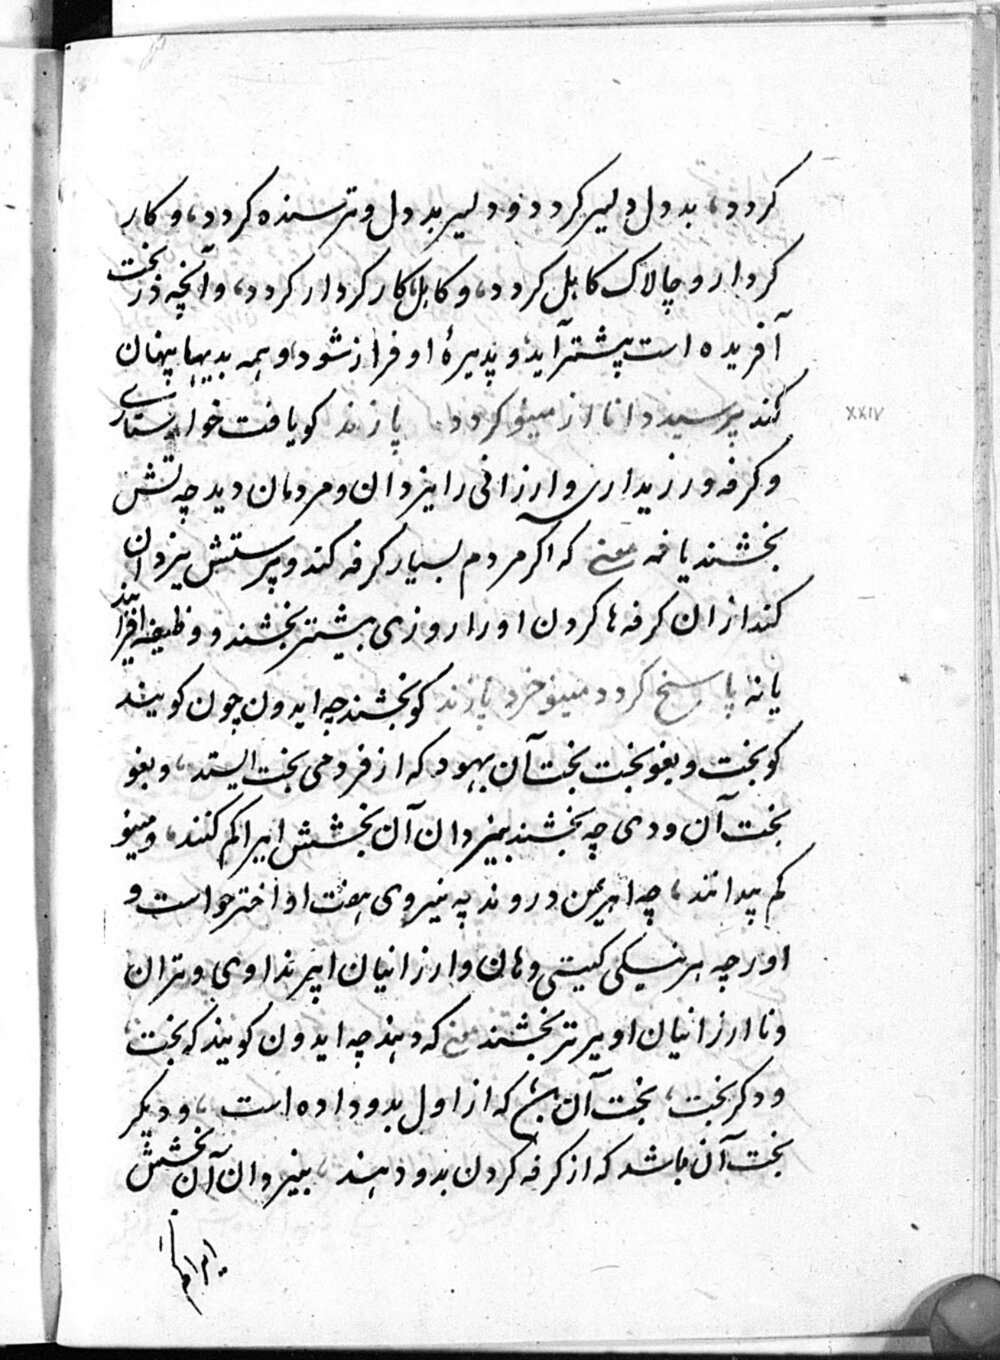 کردد، بددل دلیر کردد و دلیر بددل و ترسنده کردد، و کار
کردار و چالاک کاهل کردد، و کاهل کار کردار کردد، و آنچه در بخت
آفریده است پیشتر آید، و پدیرهٔ او فراز شود، و همه بدیها پنهان
کند پرسید دانا از مینو کردد پازند کو یافت خواستاری
XXIV
و کرفه ورزیداری و ارزانی را ایزدان و مردمان دید چه تش
بخشند یا نه معنی که اکر مردم بسیار کرفه کند و پرستش یزدان
کند از ان کرفه ها کردن او را روزی بیشتر بخشند و وظیفه افزایند
یا نه پاسخ کردد مینو خرد پازند کو بخشند چه ایدون چون کویند
کو بخت و بغوبخت بخت آن بهود که از فردمی بخت ایستد، و بغو
بخت آن ودی چه بخشند یزدان آن بخشش ایرا کم کنند، و مینو
کم پیدانند، چه اهریمن دروند په نیروی هفت او اختر خواست و
اورچه هر نیکی کیتی وهان و ارزانیان اپیرند اوی وتران
و نا ارزانیان اویرتر بخشند معنی که دهند چه ایدون کویند که بخت
و دکر بخت، بخت آن که از اول بدو داده است، و دیکر
بخت آن باشد که از کرفه کردن بدو دهند، یزدان آن بخشش
ایرا کم